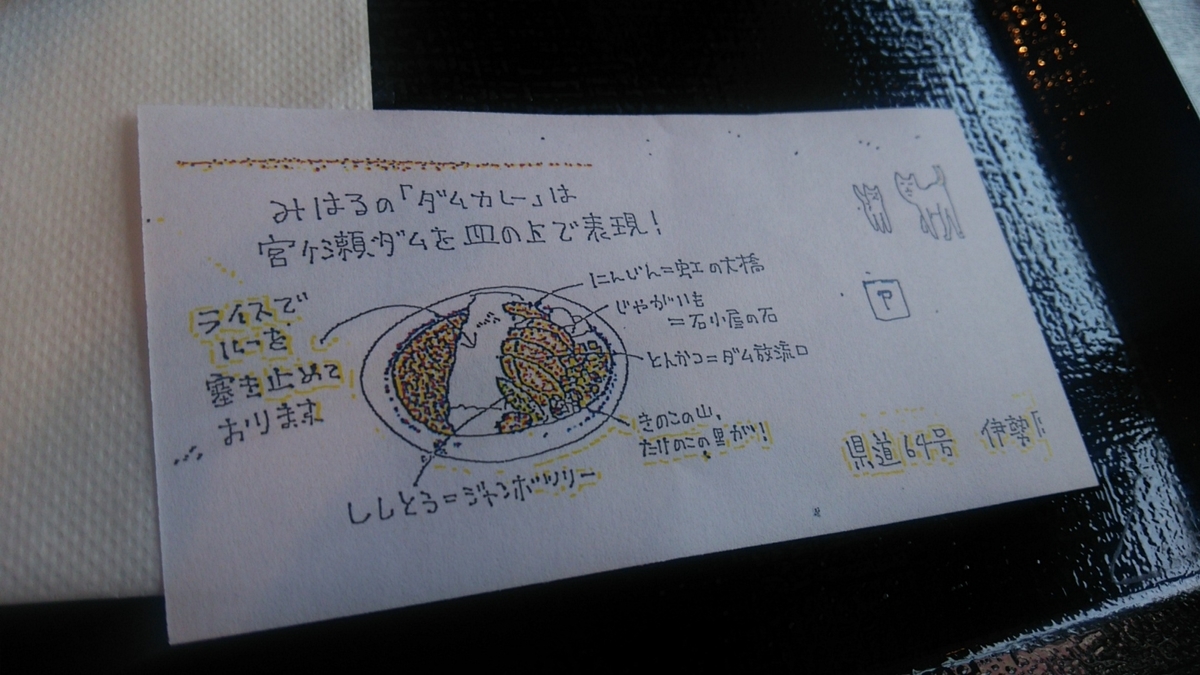 みはるの「ダムカレー」は
宮ヶ瀬ダムを皿の上で表現!
ライスで
ルーを
塞き止めて
おります
にんじん=虹の大橋
じゃがいも
=石小屋の石
とんかつ=ダム放流口
きのこの山、
たけのこの里が!
ししとう=ジャンボツリー
P
県道64号 伊勢